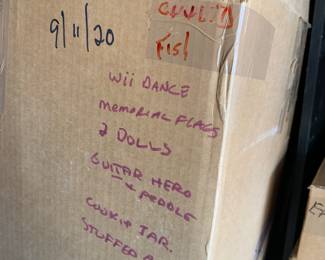 9/11/20
Fish
Wii DANCE
MEMORIAL FLAGS
2 DOLLS
GUITAR HERO
& PEDDLE
COOKIE JAR.
STUFFED A